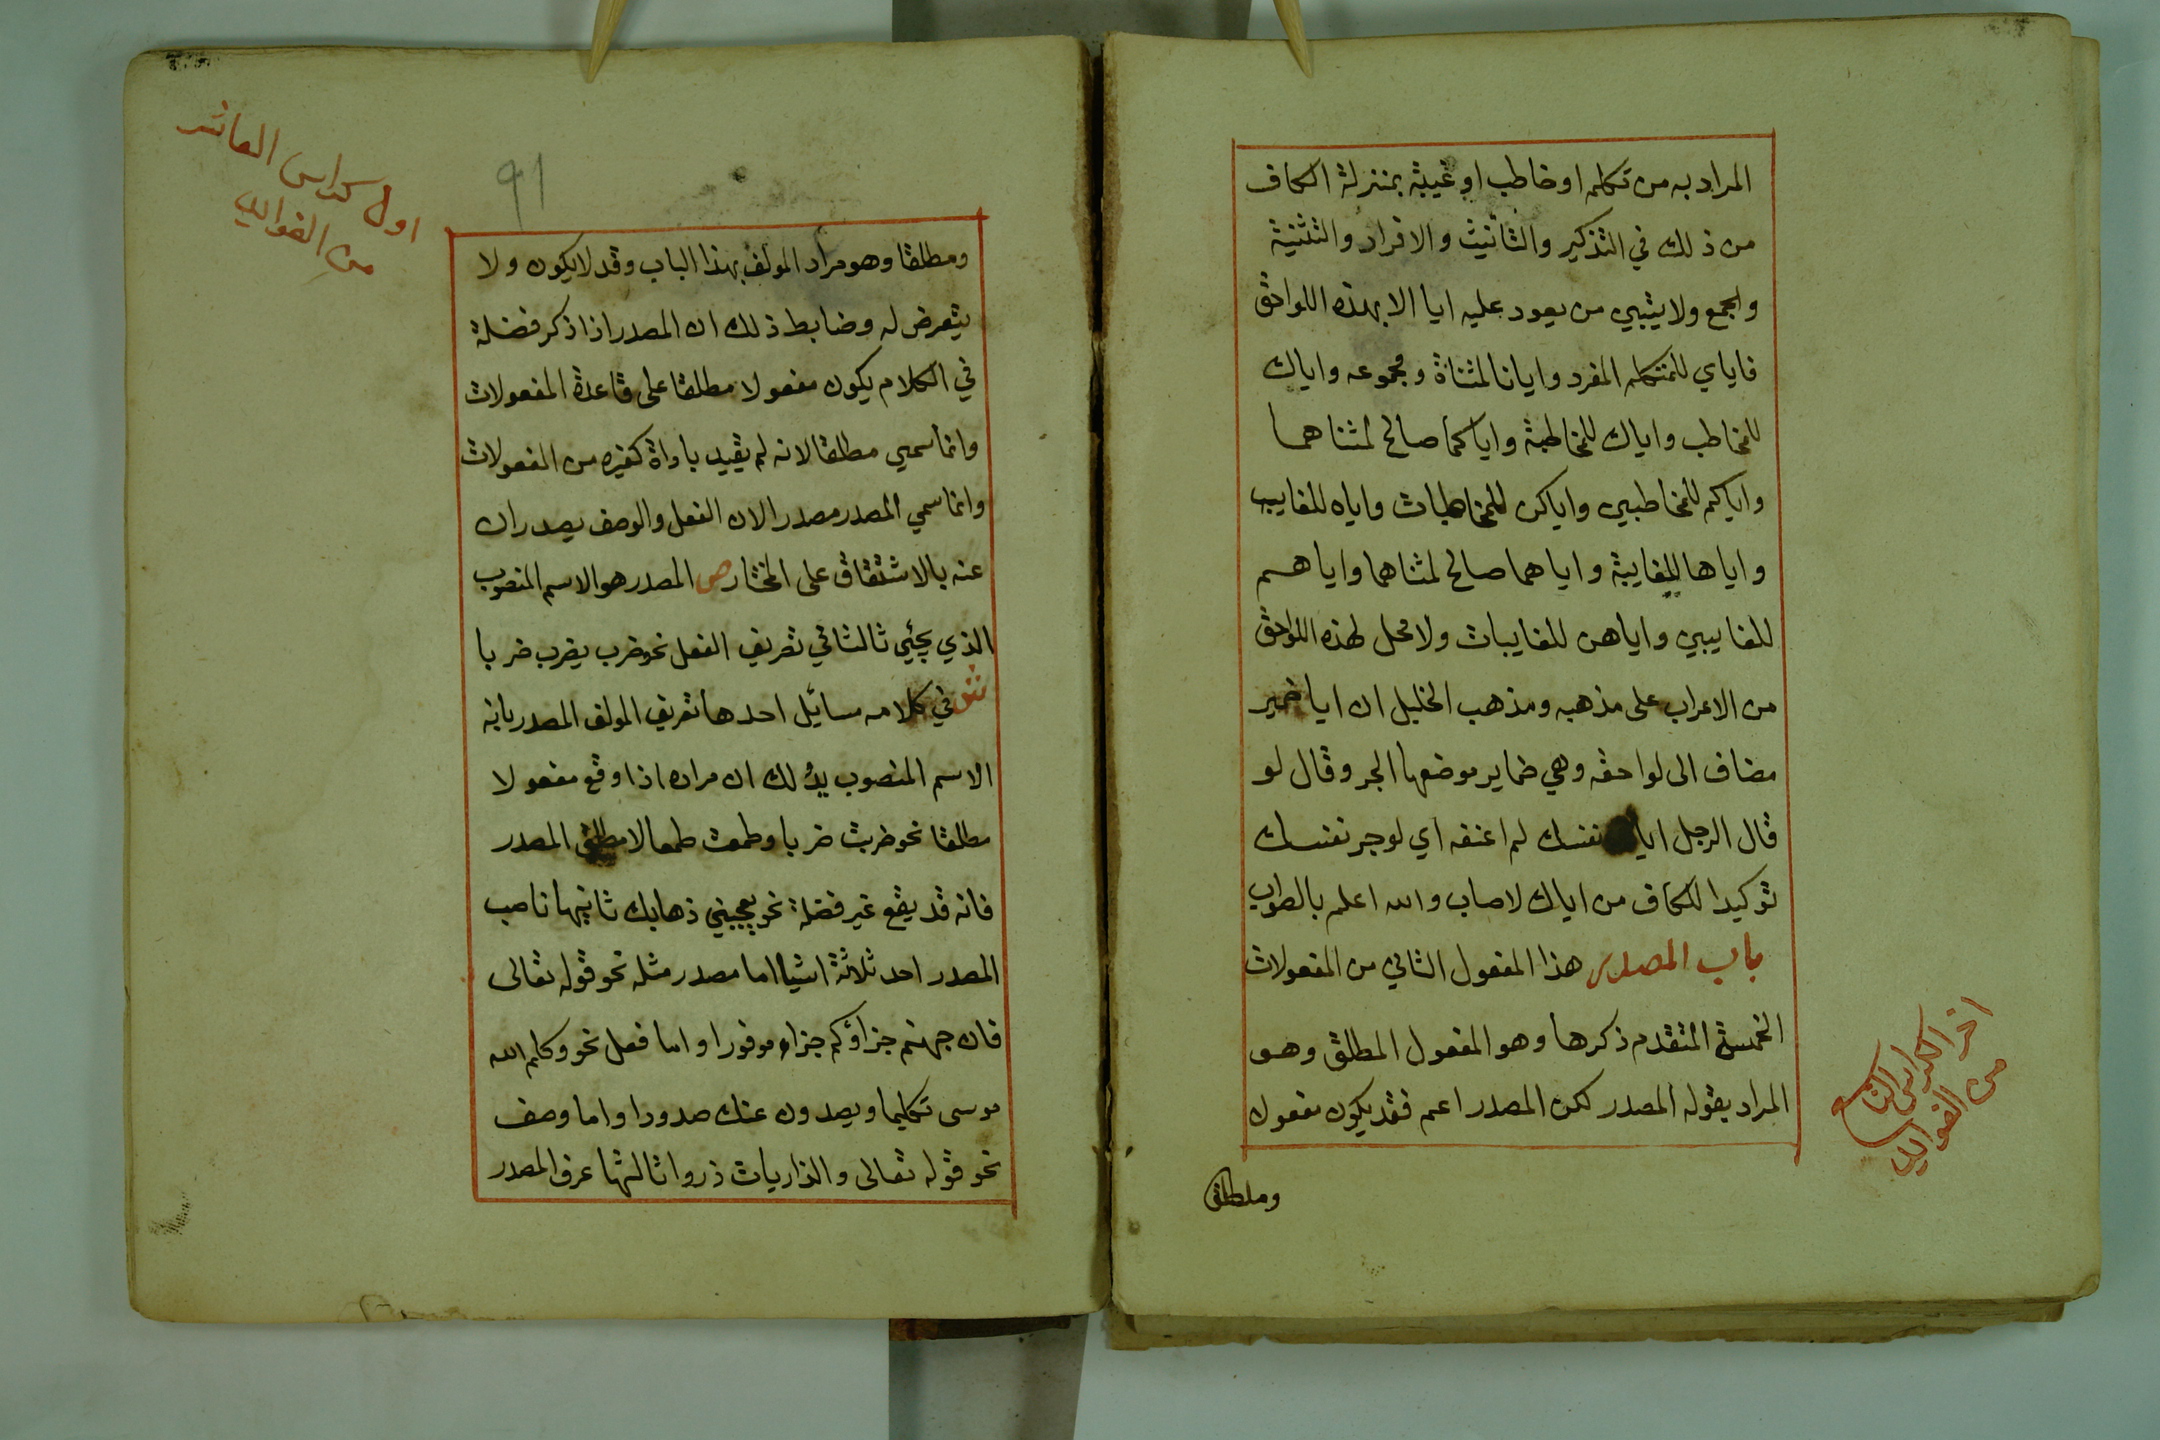 المراد به من تكلم او خاطب او غيبة بمنزلة الكاف
من ذلك في التذكير والتانيث والافراد والتثنية
والجمع ولا يتبي من يعود عليه ايا الا بهذه اللواحق
فاياي للمتكلم المفرد وايانا لمثناة ومجموعه واياك
للمخاطب واياك للمخاطبة واياكما صالح لمثناهما
واياكم للمخاطبين واياكن للمخاطبات واياه للغايب
واياها للغايبة واياهما صالح لمثناهما واياهم
للغايبين واياهن للغايبات ولا محل لهذه اللواحق
من الاعراب على مذهبه ومذهب الخليل ان ايا ضمير
مضاف الى لواحقه وهي ضماير موضعها الجر وقال لو
قال الرجل اياك نفسك لم اعنفه اي لو جر نفسك
توكيدا للكاف من اياك لاصاب والله اعلم بالصواب
باب المصدر هذا المفعول الثاني من المفعولات
الخمسة المتقدم ذكرها وهو المفعول المطلق وهو
المراد بقوله المصدر لكن المصدر اعم فقد يكون مفعول
ومطلقا
اخر الكراس التاسع
من الفوايد
اول كراس العاشر
من الفوايد
91
ومطلقا وهو مراد المولف بهذا الباب وقد لا يكون ولا
يتعرض له وضابط ذلك ان المصدر اذا ذكر فضلة
في الكلام يكون مفعولا مطلقا على قاعدة المفعولات
وانما سمي مطلقا لانه لم يقيد باداة كغيره من المفعولات
وانما سمي المصدر مصدرا لان الفعل والوصف يصدران
عنه بالاشتقاق على المختار ص المصدر هو الاسم المنصوب
الذي يجئي ثالثا في تصريف الفعل نحو ضرب يضرب ضربا
ش في كلامه مسائل احدها تعريف المولف المصدر بانه
الاسم المنصوب يدلك ان مراده اذا وقع مفعولا
مطلقا نحو ضربت ضربا وطمعت طمعا لا مطلق المصدر
فانه قد يقع غير فضلة نحو يعجبني ذهابك ثانيها ناصب
المصدر احد ثلاثة اشيا اما مصدر مثله نحو قوله تعالى
فان جهنم جزاؤكم جزاء موفورا واما فعل نحو وكلم الله
موسى تكليما ويصدون عنك صدودا واما وصف
نحو قوله تعالى والذاريات ذروا ثالثها عرف المصدر